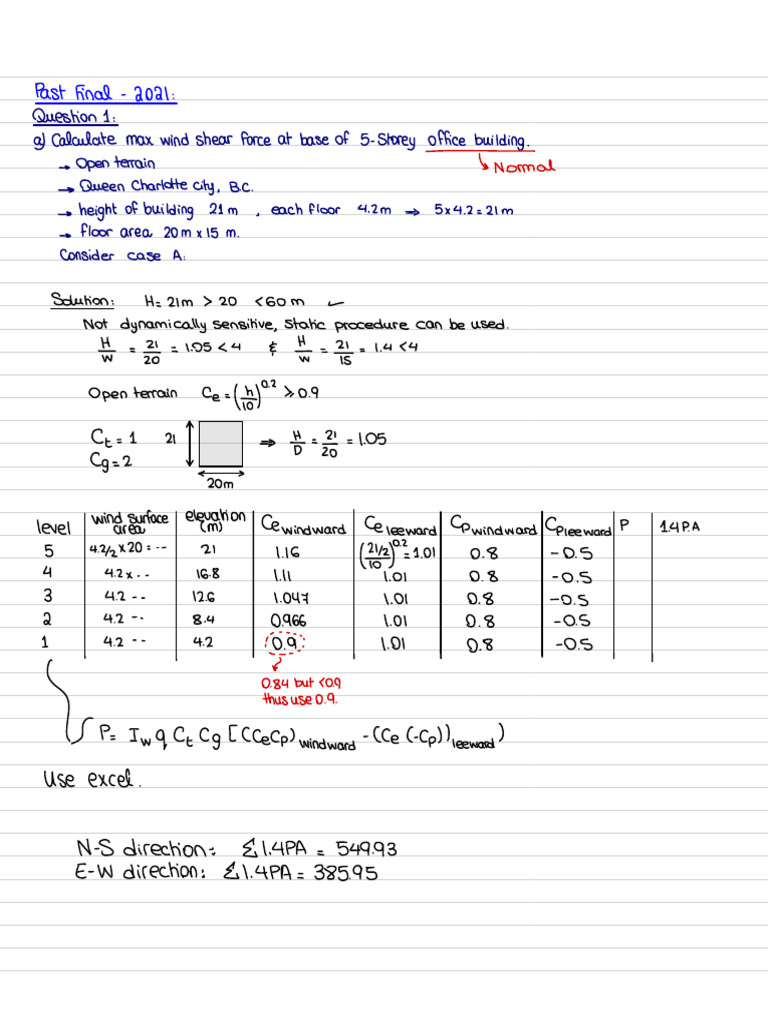 Past Final - 2021:
Question 1:
a) Calculate max wind shear force at base of 5-Storey office building.
→ Open terrain
↳ Normal
→ Queen Charlotte city, B.C.
→ height of building 21 m , each floor 4.2m ⇒ 5 x 4.2 = 21 m
→ floor area 20 m x 15 m.
Consider case A:
Solution: H = 21m > 20 < 60 m ✓
Not dynamically sensitive, static procedure can be used.
H/W = 21/20 = 1.05 < 4 & H/W = 21/15 = 1.4 < 4
Open terrain Ce = (h/10)^0.2 ≥ 0.9
Ct = 1 21 ⇒ H/D = 21/20 = 1.05
Cg = 2
20m
level | wind surface area | elevation (m) | Ce windward | Ce leeward | Cp windward | Cp leeward | P | 1.4 P.A
5 | 4.2/2 x 20 = -- | 21 | 1.16 | ((21/2)/10)^0.2 = 1.01 | 0.8 | -0.5
4 | 4.2 x -- | 16.8 | 1.11 | 1.01 | 0.8 | -0.5
3 | 4.2 -- | 12.6 | 1.047 | 1.01 | 0.8 | -0.5
2 | 4.2 -- | 8.4 | 0.966 | 1.01 | 0.8 | -0.5
1 | 4.2 -- | 4.2 | 0.9 | 1.01 | 0.8 | -0.5
0.84 but <0.9
thus use 0.9.
P = Iw q Ct Cg [(CeCp) windward - (Ce (-Cp)) leeward )
Use excel.
N-S direction: Σ1.4PA = 549.93
E-W direction: Σ1.4PA = 385.95